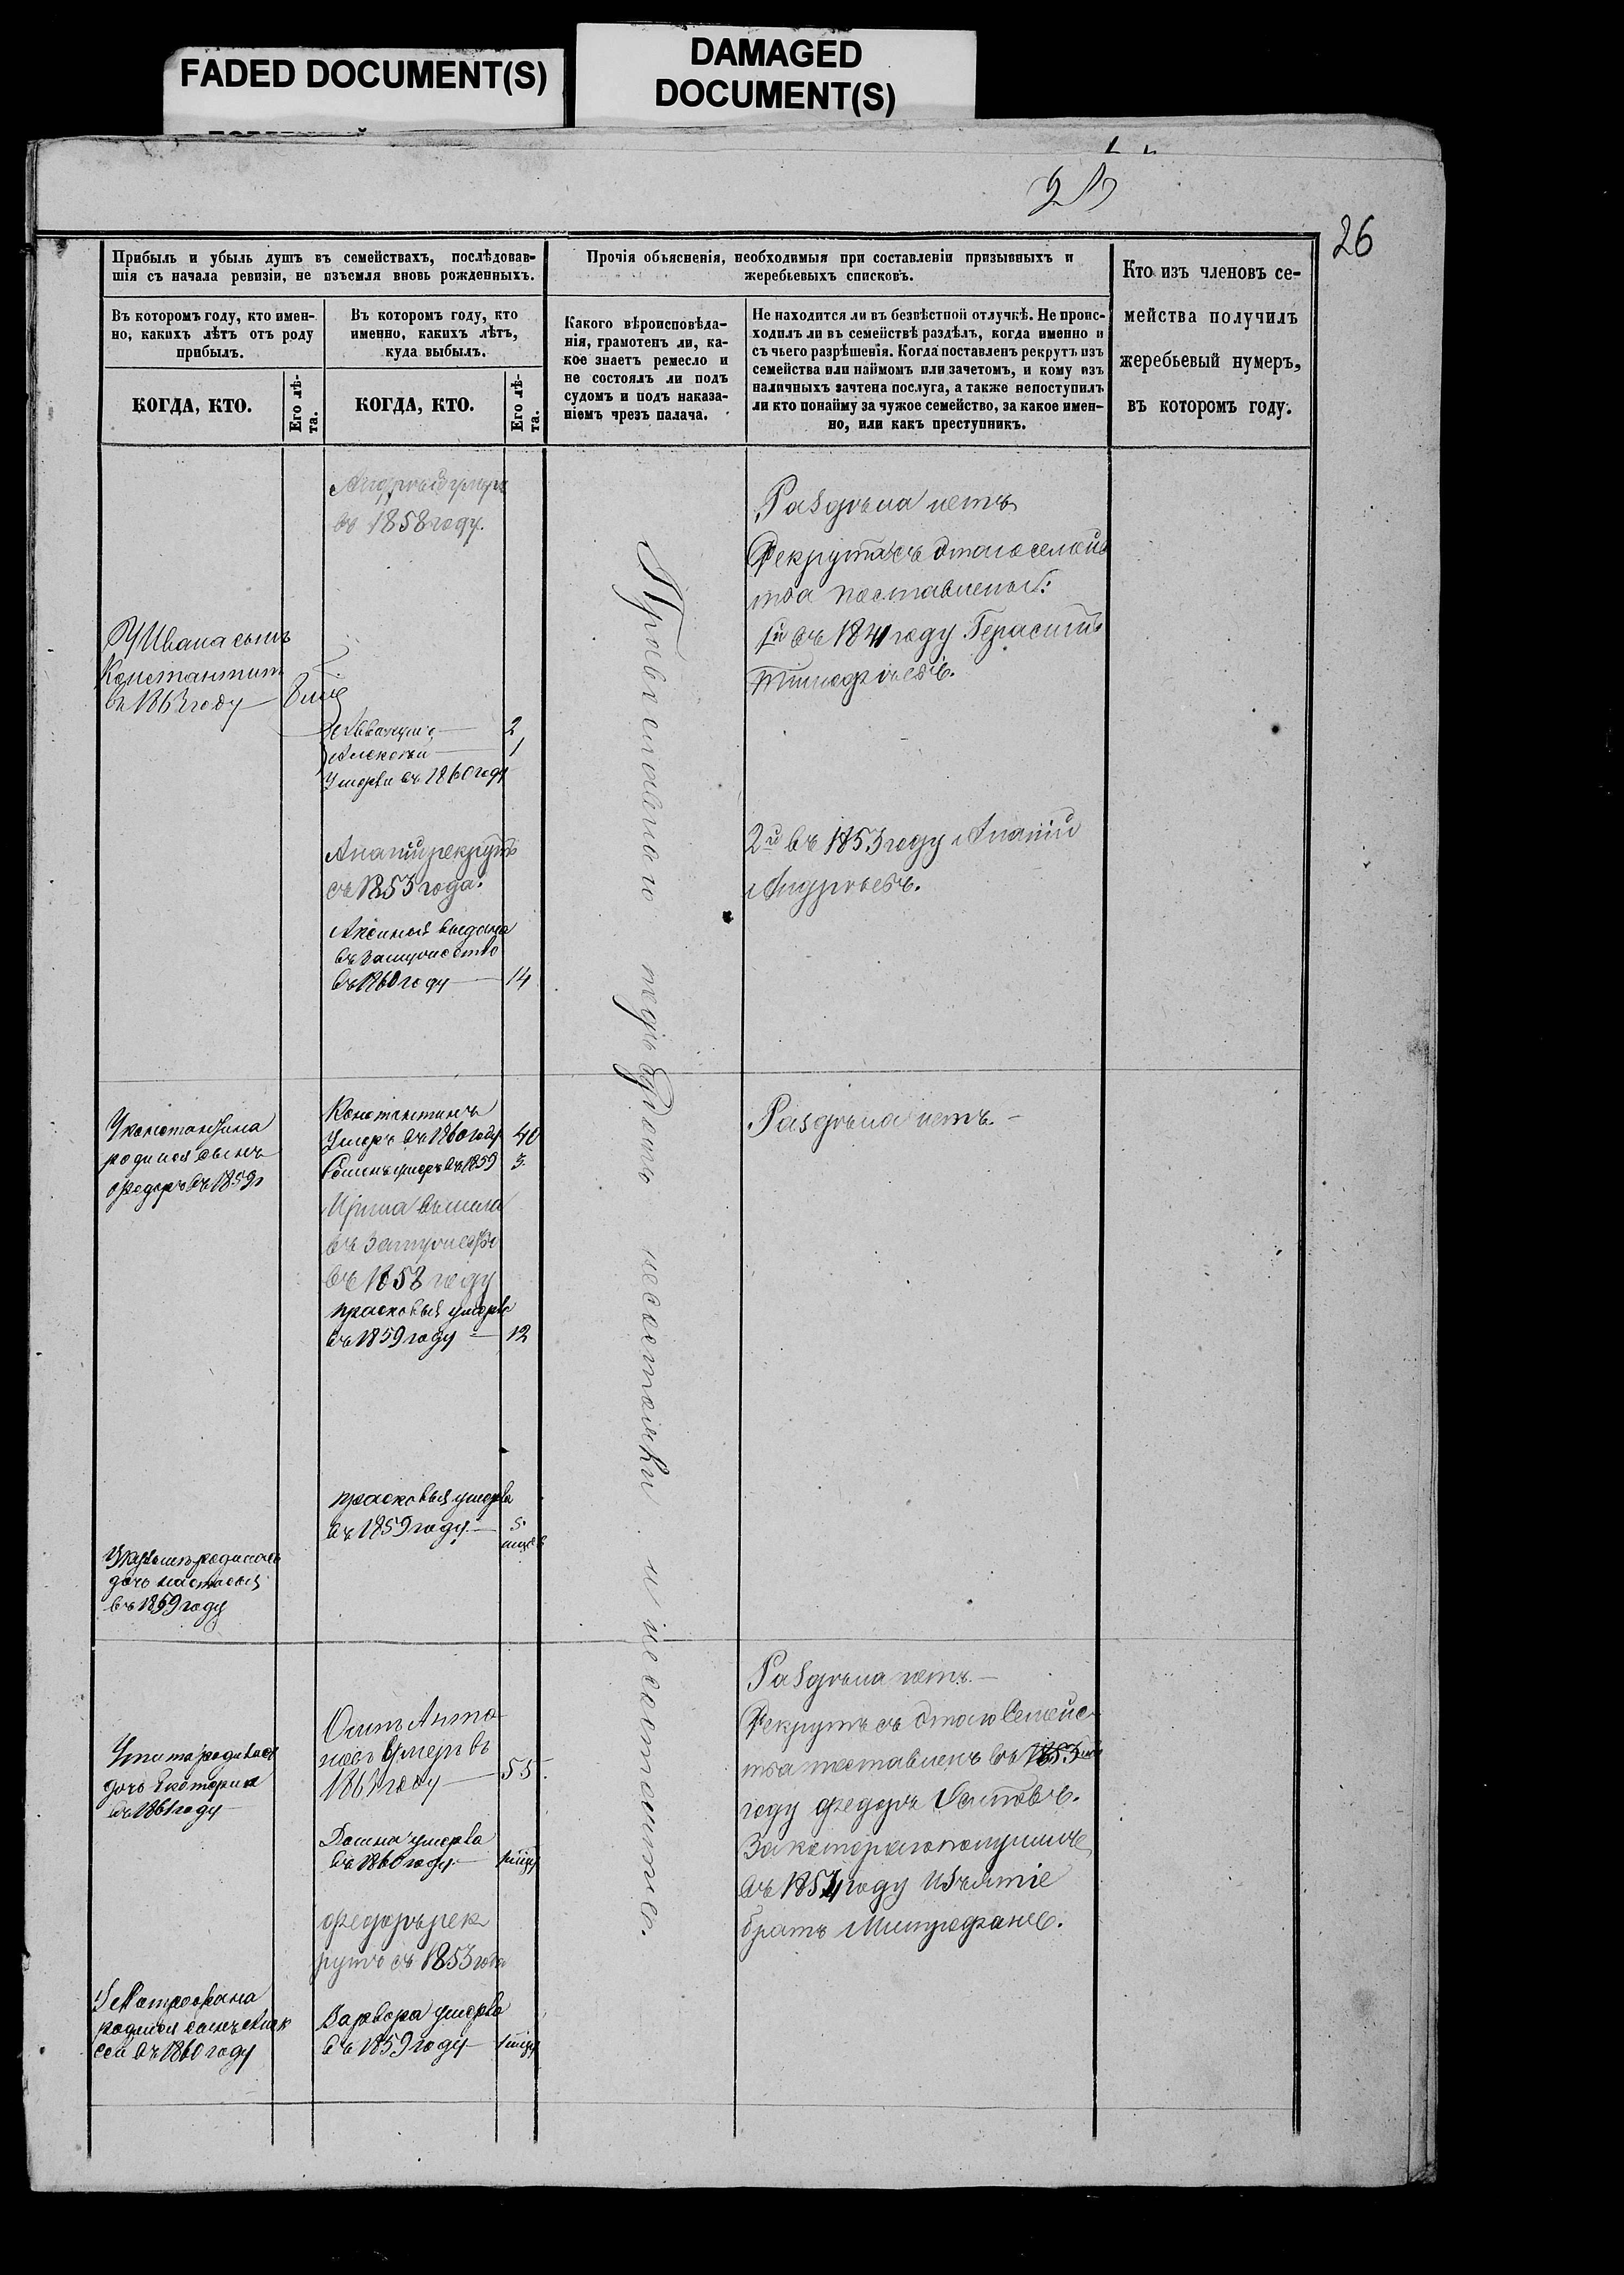 FADED DOCUMENT(S)
DAMAGED
DOCUMENT(S)
26
Прибыль и убыль душъ въ семействахъ, послѣдовав-
шія съ начала ревизіи, не изъемля вновь рожденныхъ.
Въ которомъ году, кто имен-
но, какихъ лѣтъ отъ роду
прибылъ.
КОГДА, КТО.
Его лѣ-
та.
Въ которомъ году, кто
именно, какихъ лѣтъ,
куда выбылъ.
КОГДА, КТО.
Его лѣ-
та.
Прочія объясненія, необходимыя при составленіи призывныхъ и
жеребьевыхъ списковъ.
Какого вѣроисповѣда-
нія, грамотенъ ли, ка-
кое знаетъ ремесло и
не состоялъ ли подъ
судомъ и подъ наказа-
ніемъ чрезъ палача.
Не находится ли въ безвѣстной отлучкѣ. Не проис-
ходилъ ли въ семействѣ раздѣлъ, когда именно и
съ чьего разрѣшенія. Когда поставленъ рекрутъ изъ
семейства или наймомъ или зачетомъ, и кому изъ
наличныхъ зачтена послуга, а также непоступилъ
ли кто понайму за чужое семейство, за какое имен-
но, или какъ преступникъ.
Кто изъ членовъ се-
мейства получилъ
жеребьевый нумеръ,
въ которомъ году.
Андрей умеръ
въ 1858 году.
У Ивана сынъ
Константинъ
въ 1863 году
2
Алексей 1
Умерли въ 1860 году
Ананій рекрутъ
съ 1853 года.
Аксинья выдана
въ замужство
въ 1860 году 14
Раздѣла нетъ
Рекрутъ съ этого семейс
тва поставлены:
1й въ 1841 году Герасимъ
Тимофѣевъ.
2й въ 1853 году Ананій
Андрѣевъ.
У константина
родился сынъ
Федоръ въ 1859г
Константинъ
Умеръ въ 1860 году 40
умеръ въ 1859 3.
Ирина вышла
въ замужство
въ 1858 году
прасковья умерла
въ 1859 году 12
прасковья умерла
въ 1859 году 5.
родилась
дочь настасья
въ 1859 году
Раздѣла нетъ.
Раздѣла нетъ.
Рекрутъ съ этого семейс
тва поставленъ въ 1853
году Федоръ Осиповъ.
За котораго получилъ
въ 1854 году изъятіе
братъ Митрофанъ.
родилась
дочь Екатерина
въ 1861 году
Осипъ Анто
новъ умеръ въ
1861 году 55
Домна умерла
въ 1860 году
Федоръ рек
рутъ съ 1853 года
У Митрофана
родился сынъ Алек
сей въ 1860 году
Варвара умерла
въ 1859 году